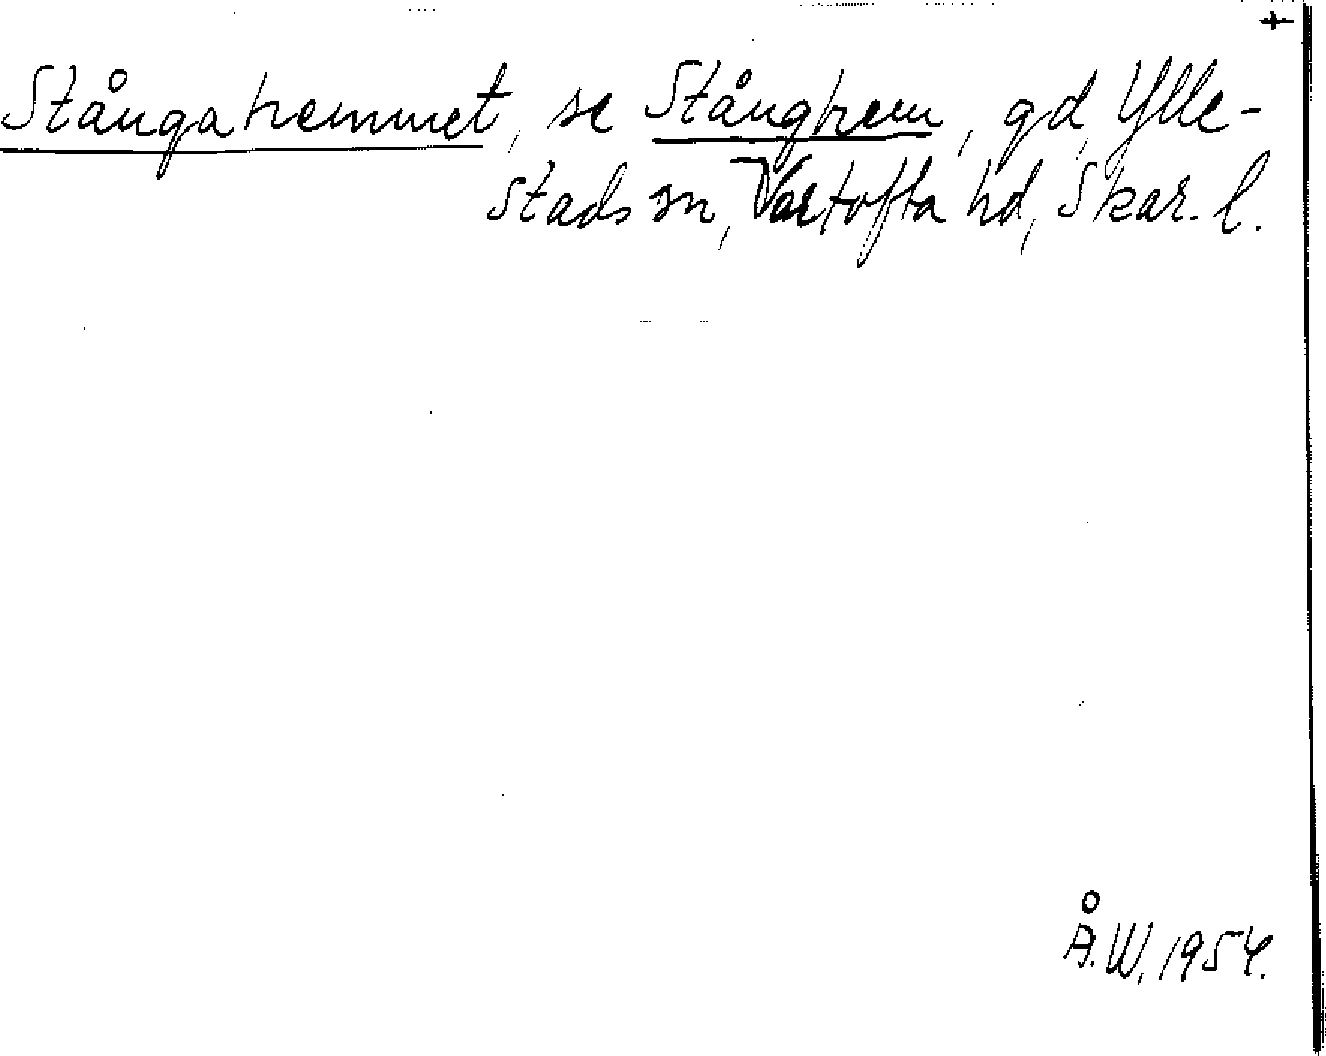 Stångahemmet, se Stånghem, gd, Ylle-
stads sn, Vartofta hd, Skar. l.
Å.W. 1954.